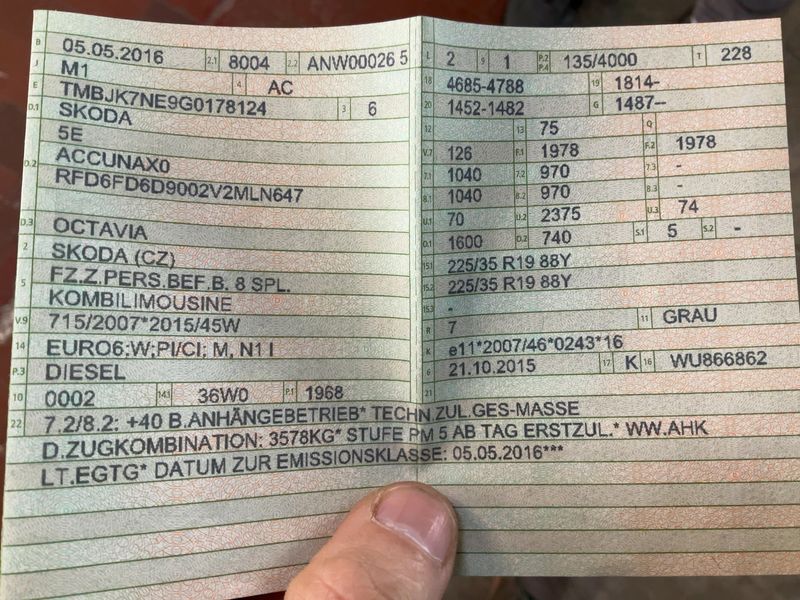 B 05.05.2016 2.1 8004 2.2 ANW00026 5
J M1 4 AC
E TMBJK7NE9G0178124 3 6
D.1 SKODA
5E
D.2 ACCUNAX0
RFD6FD6D9002V2MLN647
D.3 OCTAVIA
2 SKODA (CZ)
5 FZ.Z.PERS.BEF.B. 8 SPL.
KOMBILIMOUSINE
V.9 715/2007*2015/45W
14 EURO6;W;PI/CI; M, N1 I
P.3 DIESEL
10 0002 14.1 36W0 P.1 1968
L 2 9 1 P.2 P.4 135/4000 T 228
18 4685-4788 19 1814-
20 1452-1482 G 1487--
12 13 75 Q
V.7 126 F.1 1978 F.2 1978
7.1 1040 7.2 970 7.3 -
8.1 1040 8.2 970 8.3 -
U.1 70 U.2 2375 U.3 74
O.1 1600 O.2 740 S.1 5 S.2 -
15.1 225/35 R19 88Y
15.2 225/35 R19 88Y
15.3 -
R 7 11 GRAU
K e11*2007/46*0243*16
6 21.10.2015 17 K 16 WU866862
21
22 7.2/8.2: +40 B.ANHÄNGEBETRIEB* TECHN.ZUL.GES-MASSE
D.ZUGKOMBINATION: 3578KG* STUFE PM 5 AB TAG ERSTZUL.* WW.AHK
LT.EGTG* DATUM ZUR EMISSIONSKLASSE: 05.05.2016***